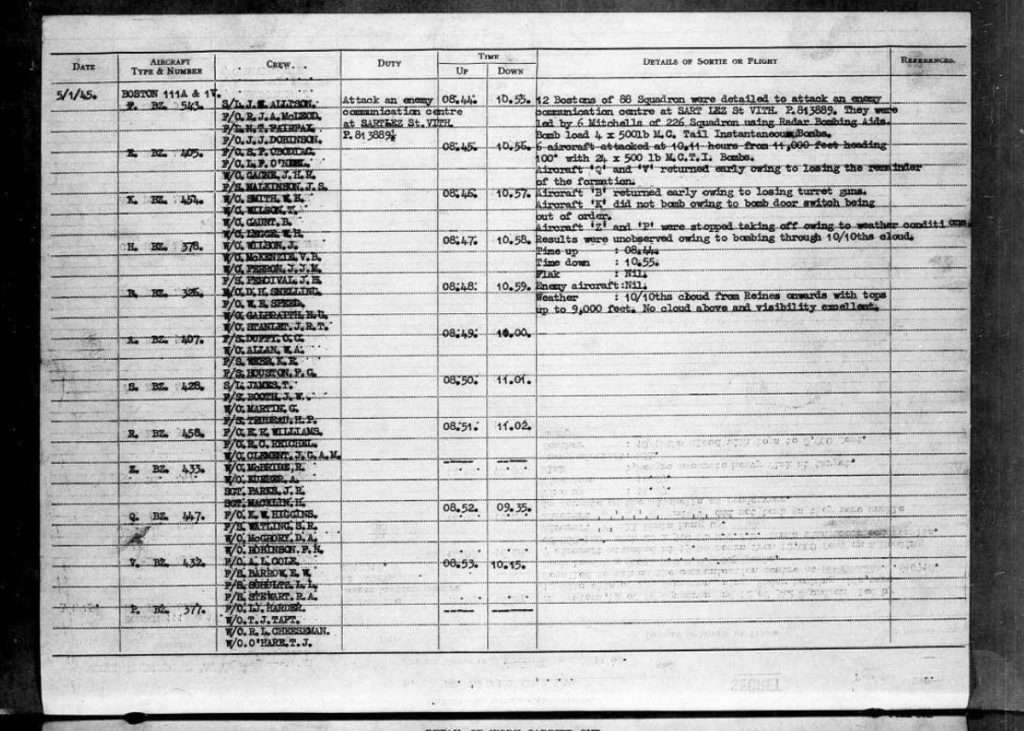 DATE AIRCRAFT TYPE & NUMBER CREW. DUTY TIME UP DOWN DETAILS OF SORTIE OR FLIGHT REFERENCES.
5/1/45. BOSTON 111A & 1V.
F. BZ. 543. S/L. J. ALLISON. Attack an enemy 08.44. 10.55. 12 Bostons of 88 Squadron were detailed to attack an enemy
F/O. R.J.A. McLEOD. communication centre communication centre at SART LEZ St VITH. P.813889. They were
F/L. N.T. FAIRFAX. at SARTLEZ St.VITH. led by 6 Mitchells of 226 Squadron using Radar Bombing Aids.
F/O. J.J. DOBINSON. P.813889. Bomb load 4 x 500lb M.C. Tail Instantaneous Bombs.
BZ. 405. F/O. S.F. 08.45. 10.56 6 aircraft attacked at 10.11 hours from 11,000 feet heading
F/O. L.P. O'NEIL. 100° with 24 x 500 lb M.C.T.I. Bombs.
W/O. GAGNE, J.H.R. Aircraft 'Q' and 'V' returned early owing to losing the remainder
F/S. MALKINSON, J.S. of the formation.
K. BZ. W/O. SMITH, 08.46. 10.57. Aircraft 'B' returned early owing to losing turret guns.
W/O. WILSON, Aircraft 'K' did not bomb owing to bomb door switch being
W/O. GAUNT, out of order.
W/O. Aircraft 'Z' and 'P' were stopped taking off owing to weather conditions
H. BZ. 378. W/O. WILSON, J. 08.47. 10.58. Results were unobserved owing to bombing through 10/10ths cloud.
W/O. McKENZIE, V.B. Time up : 08.44.
W/O. FERRON, J.J.M. Time down : 10.55.
F/S. PERCIVAL, J.H. Flak : Nil.
B. BZ. W/O. D.H. SNELLING. 08.48. 10.59. Enemy aircraft: Nil.
F/O. W.E. SPEED. Weather : 10/10ths cloud from Reines onwards with tops
W/O. GALBRAITH, up to 9,000 feet. No cloud above and visibility excellent.
W/O. STANLEY, J.R.T.
A. BZ. 407. F/S. DUFFY, 08.49. 11.00.
W/O. ALLAN, W.A.
F/S. WEBB, K.E.
F/S. HOUSTON, P.G.
S. BZ. 428. S/L. JAMES, T. 08.50. 11.01.
F/S. BOOTH, J.W.
W/O. MARTIN, G.
F/S. H.P.
R. BZ. 458. F/O. WILLIAMS. 08.51. 11.02.
F/O. R.C. REICHEL.
W/O. CLEMENT, J.G.A.M.
Z. BZ. 433. W/O. McBRIDE, R. ---- ----
W/O.
SGT. PARKE, J.R.
SGT. MACKLIN, H.
Q. BZ. 447. F/O. K.W. HIGGINS. 08.52. 09.35.
F/S. WATLING, S.R.
W/O. McGRORY, D.A.
W/O. ROBINSON, F.N.
V. BZ. 432. F/O. A.L. COLE. 08.53. 10.15.
F/S. BARROW, E.W.
F/S. SCHULTZ, L.L.
F/S. STEWART, R.A.
P. BZ. 377. F/O. L.J. HARDER. ---- ----
W/O. T.J. TAFT.
W/O. R.L. CHEESEMAN.
W/O. O'HARE, T.J.